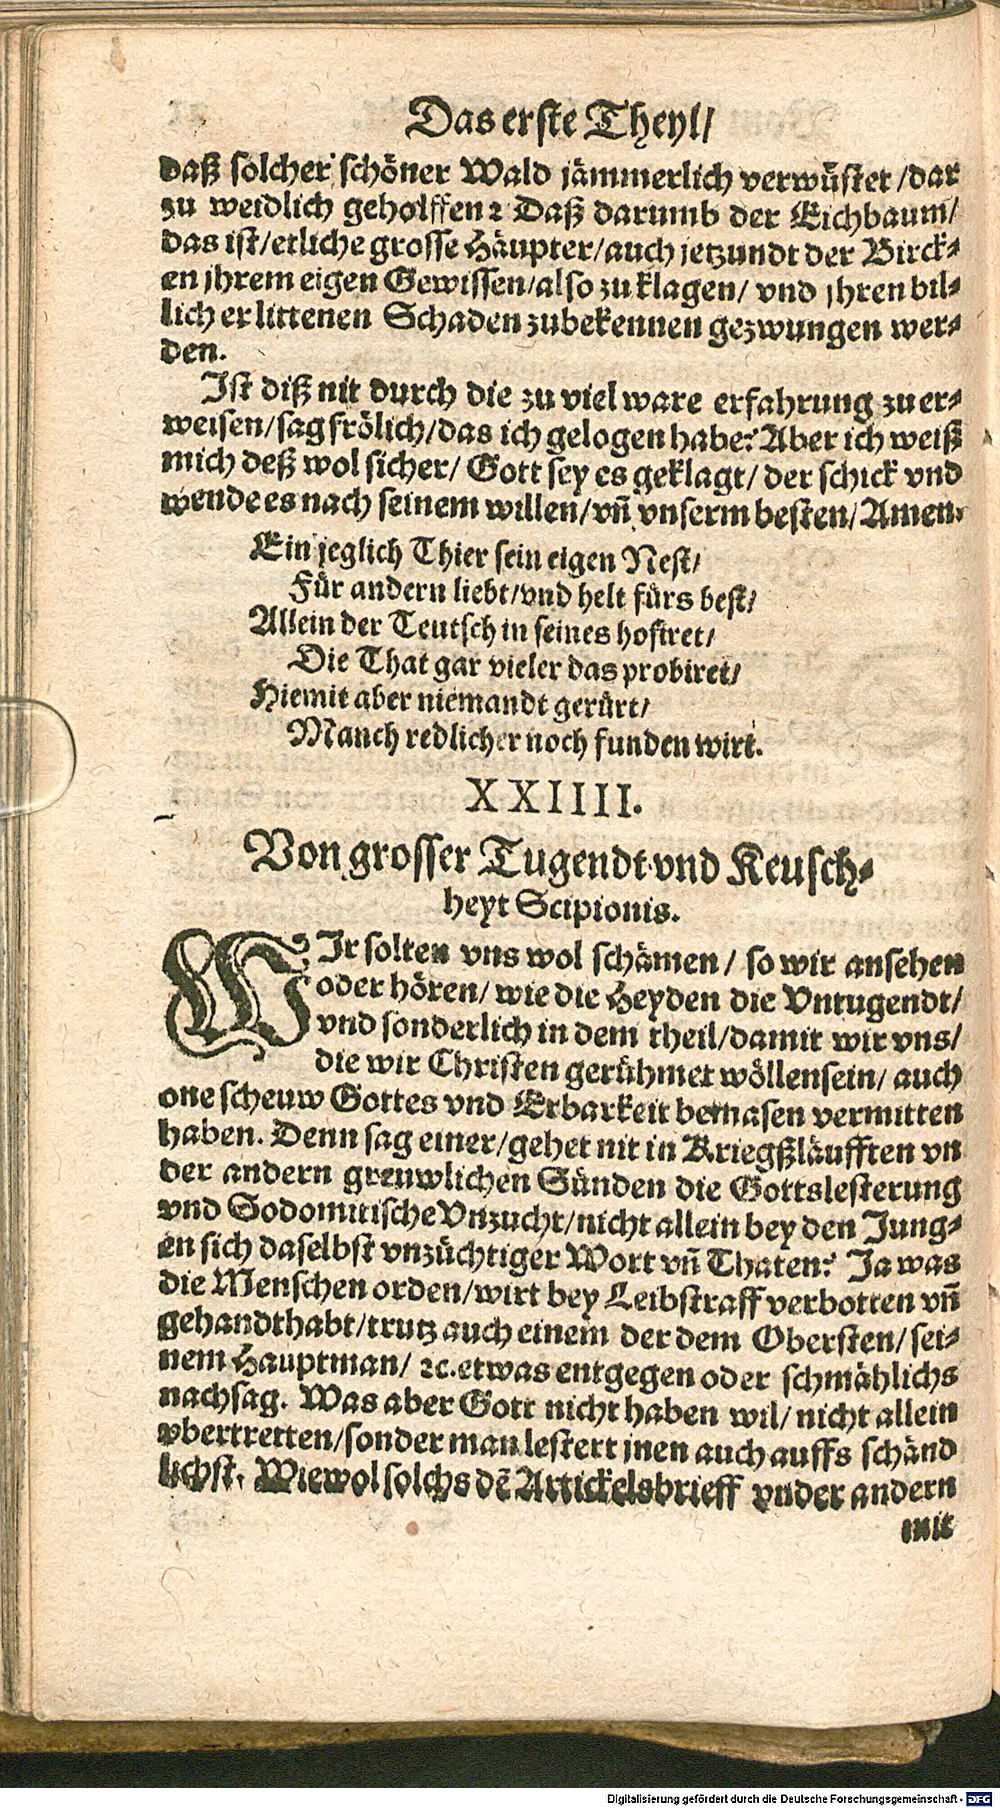 Das erste Theyl/
daß solcher schöner Wald jämmerlich verwüstet/dar
zu weidlich geholffen? Daß darumb der Eichbaum/
das ist/etliche grosse Häupter/auch jetzundt der Birck-
en jhrem eigen Gewissen/also zu klagen/ vnd jhren bil-
lich erlittenen Schaden zubekennen gezwungen wer-
den.
Ist diß nit durch die zu viel ware erfahrung zu er-
weisen/sag frölich/das ich gelogen habe? Aber ich weiß
mich deß wol sicher/ Gott sey es geklagt/ der schick vnd
wende es nach seinem willen/vñ vnserm besten/Amen.
Ein jeglich Thier sein eigen Nest/
Für andern liebt/vnd helt fürs best/
Allein der Teutsch in seines hofiret/
Die That gar vieler das probiret/
Hiemit aber niemandt gerürt/
Manch redlicher noch funden wirt.
XXIIII.
Von grosser Tugendt vnd Keusch-
heyt Scipionis.
WIr solten vns wol schämen/ so wir ansehen
oder hören/ wie die Heyden die Vntugendt/
vnd sonderlich in dem theil/damit wir vns/
die wir Christen gerühmet wöllen sein/ auch
one scheuw Gottes vnd Erbarkeit bemasen vermitten
haben. Denn sag einer/gehet nit in Kriegßläufften vn
der andern greuwlichen Sünden die Gottslesterung
vnd Sodomitische Vnzucht/nicht allein bey den Jung-
en sich daselbst vnzüchtiger Wort vñ Thaten? Ja was
die Menschen orden/wirt bey Leibstraff verbotten vñ
gehandthabt/trutz auch einem der dem Obersten/sei-
nem Hauptman/ ꝛc. etwas entgegen oder schmählichs
nachsag. Was aber Gott nicht haben wil/ nicht allein
vbertretten/sonder man lestert jnen auch auffs schänd
lichst. Wiewol solchs dẽ Artickelsbrieff vnder andern
mit
Digitalisierung gefördert durch die Deutsche Forschungsgemeinschaft - DFG